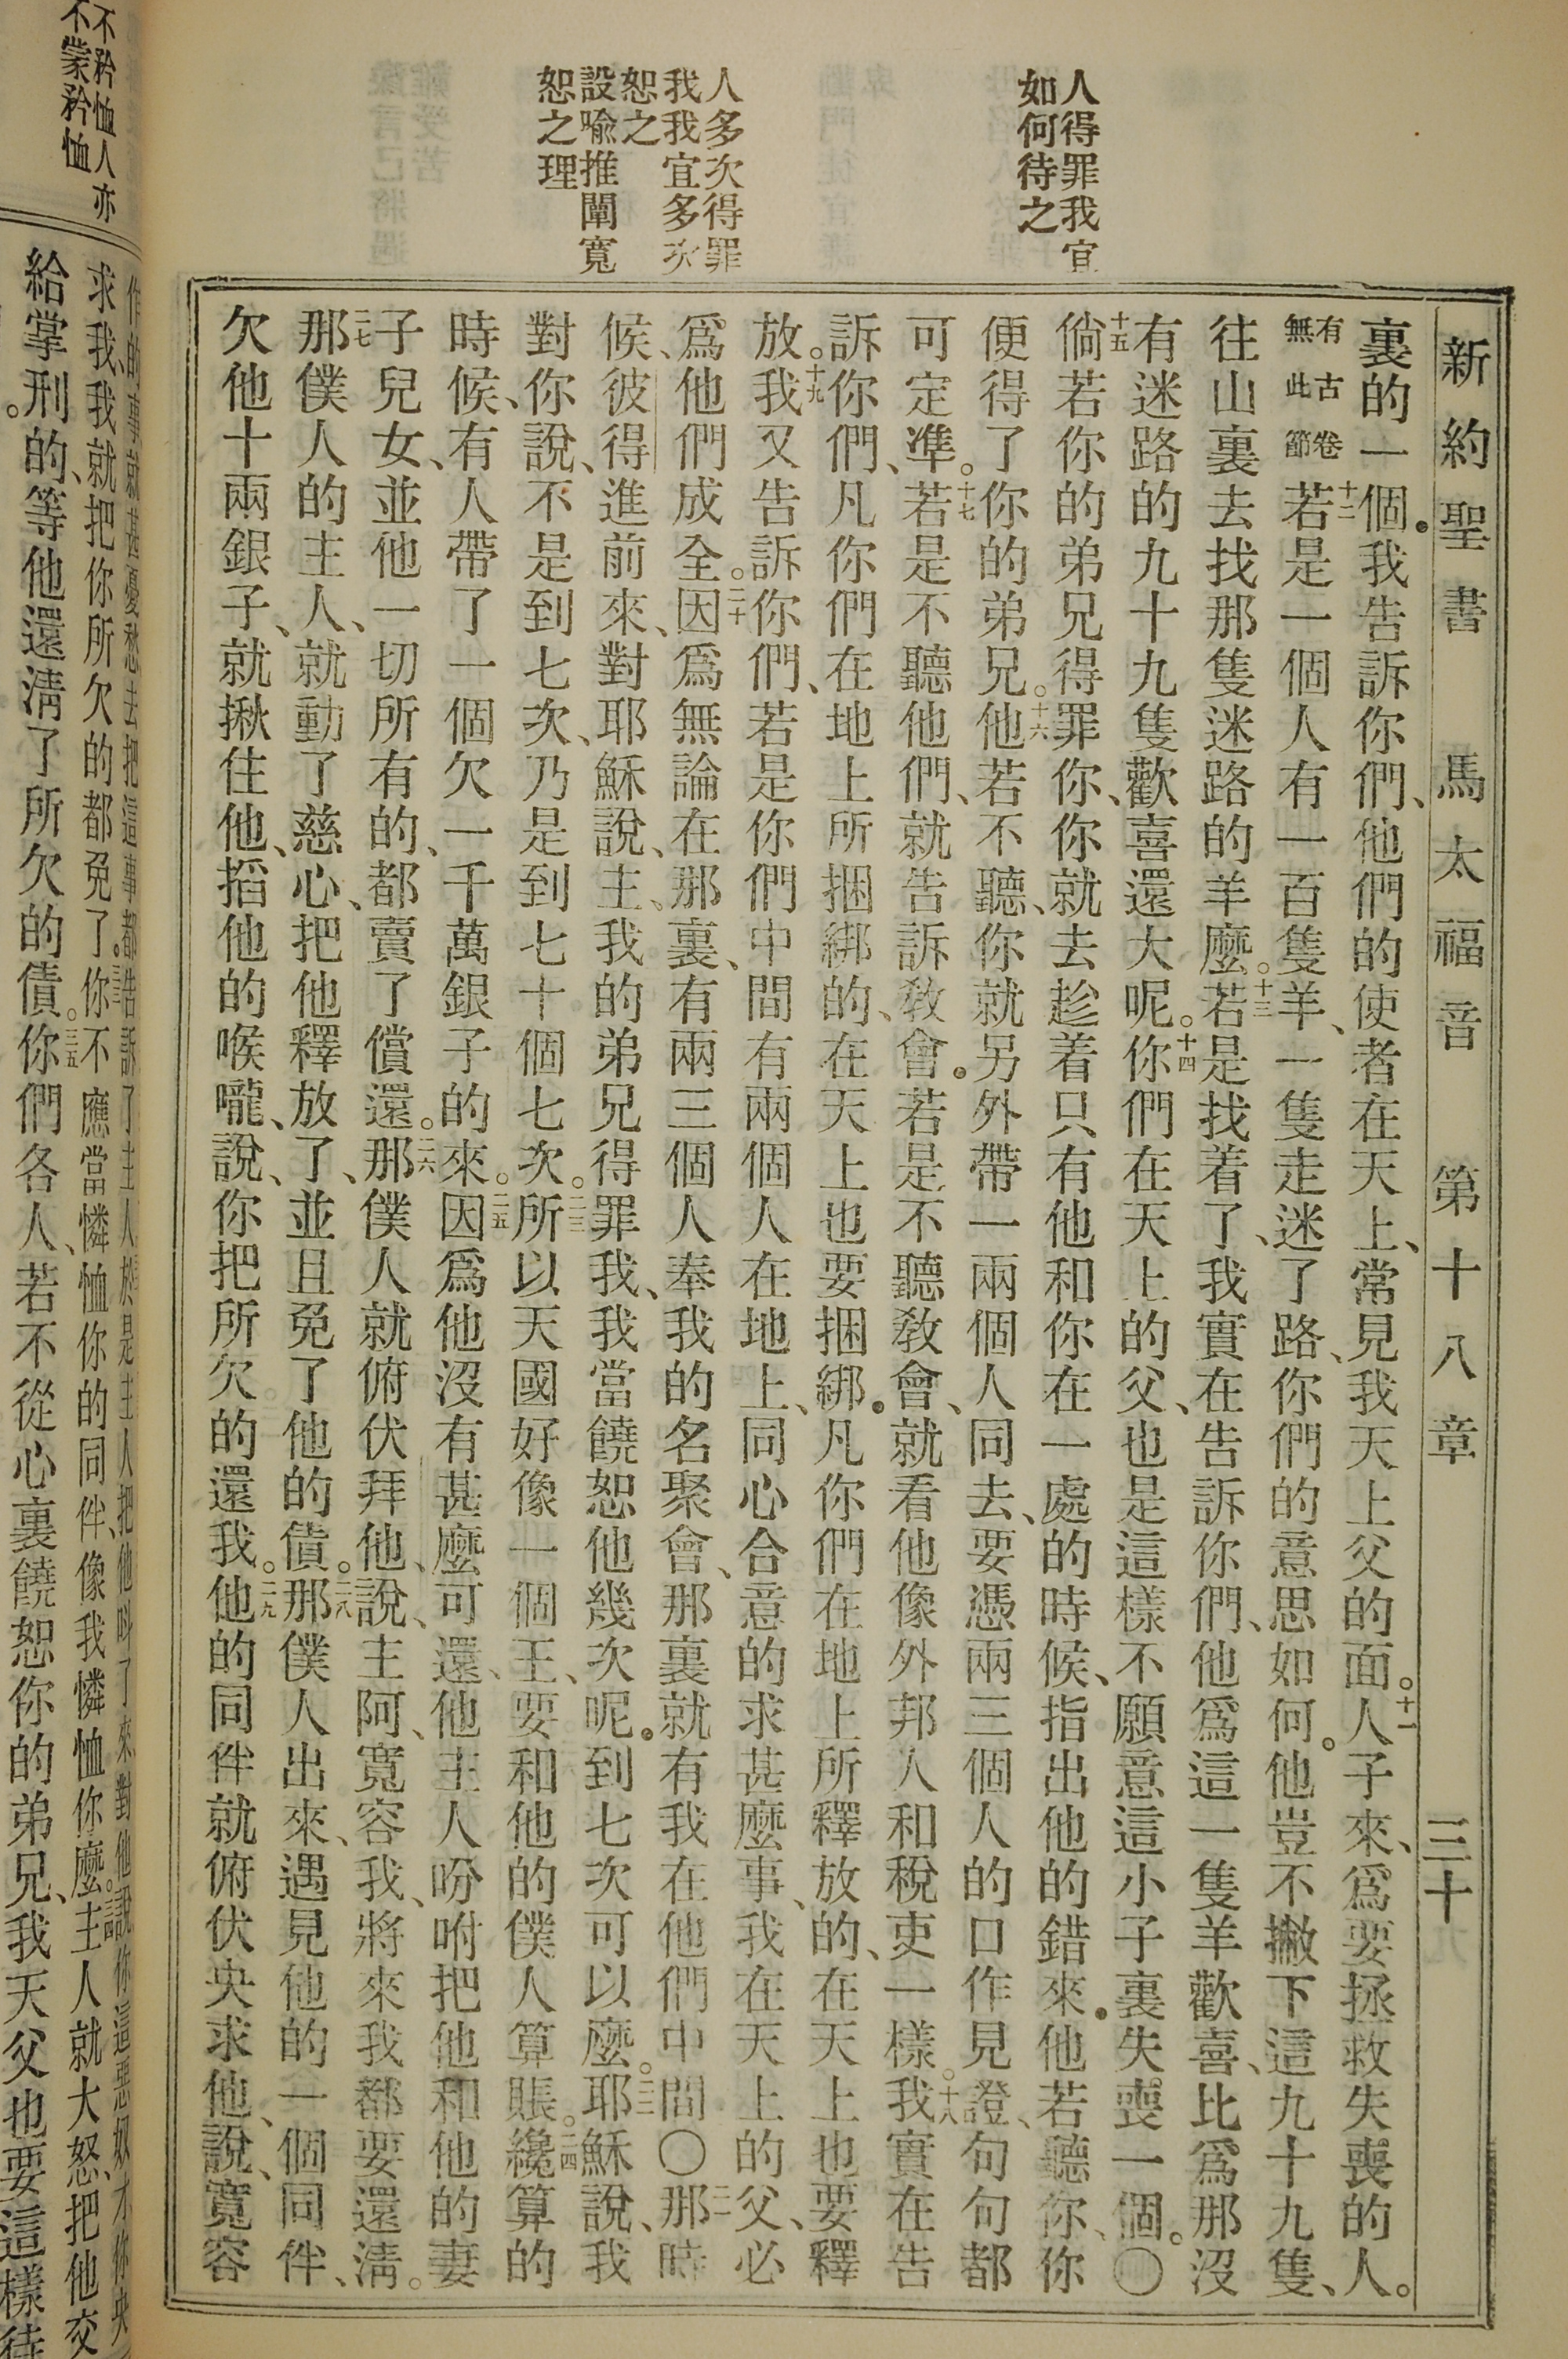 人得罪我宜
如何待之
人多次得罪
我我宜多次
恕之
設喻推闡寬
恕之理
新約聖書　馬太福音　第十八章　三十
裏的一個。我告訴你們、他們的使者在天上、常見我天上父的面。十一人子來、爲要拯救失喪的人。
有古卷無此節十二若是一個人有一百隻羊、一隻走迷了路、你們的意思如何。他豈不撇下這九十九隻、
往山裏去找那隻迷路的羊麼。十三若是找着了、我實在告訴你們、他爲這一隻羊歡喜、比爲那沒
有迷路的九十九隻歡喜還大呢。十四你們在天上的父、也是這樣不願意這小子裏失喪一個。〇
十五倘若你的弟兄得罪你、你就去趁着只有他和你在一處的時候、指出他的錯來。他若聽你、你
便得了你的弟兄。十六他若不聽、你就另外帶一兩個人同去、要憑兩三個人的口作見證、句句都
可定準。十七若是不聽他們、就告訴敎會。若是不聽敎會、就看他像外邦人和稅吏一樣。十八我實在告
訴你們、凡你們在地上所捆綁的、在天上也要捆綁。凡你們在地上所釋放的、在天上也要釋
放。十九我又告訴你們、若是你們中間有兩個人在地上、同心合意的求甚麼事、我在天上的父、必
爲他們成全。二十因爲無論在那裏、有兩三個人奉我的名聚會、那裏就有我在他們中間〇二一那時
候、彼得進前來、對耶穌說、主、我的弟兄得罪我、我當饒恕他幾次呢。到七次可以麼。二二耶穌說、我
對你說、不是到七次、乃是到七十個七次。二三所以天國好像一個王、要和他的僕人算賬。二四纔算的
時候、有人帶了一個欠一千萬銀子的來。二五因爲他沒有甚麼可還、他主人吩咐把他和他的妻
子兒女、並他一切所有的、都賣了償還。二六那僕人就俯伏拜他、說、主阿、寬容我、將來我都要還淸。
二七那僕人的主人、就動了慈心、把他釋放了、並且免了他的債。二八那僕人出來、遇見他的一個同伴、
欠他十兩銀子、就揪住他、搯他的喉嚨、說、你把所欠的還我。二九他的同伴就俯伏央求他、說、寬容
不矜恤人亦
不蒙矜恤
作的事就甚憂愁去把這事都告訴了主人於是主人把他呌了來對他說你這惡奴才你央
求我、我就把你所欠的都免了。三三你不應當憐恤你的同伴、像我憐恤你麼。主人就大怒、把他交
給掌刑的、等他還淸了所欠的債。三五你們各人、若不從心裏饒恕你的弟兄、我天父也要這樣待